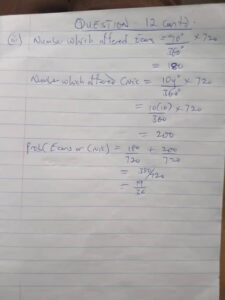 QUESTION 12 contd.
Number which offered Econ = 90°/360° × 720
= 180
Number which offered Civic = 100°/360° × 720
= 10(10)/360 × 720
= 200
Prob( Econs or Civic) = 180/720 + 200/720
= 380/720
= 19/36